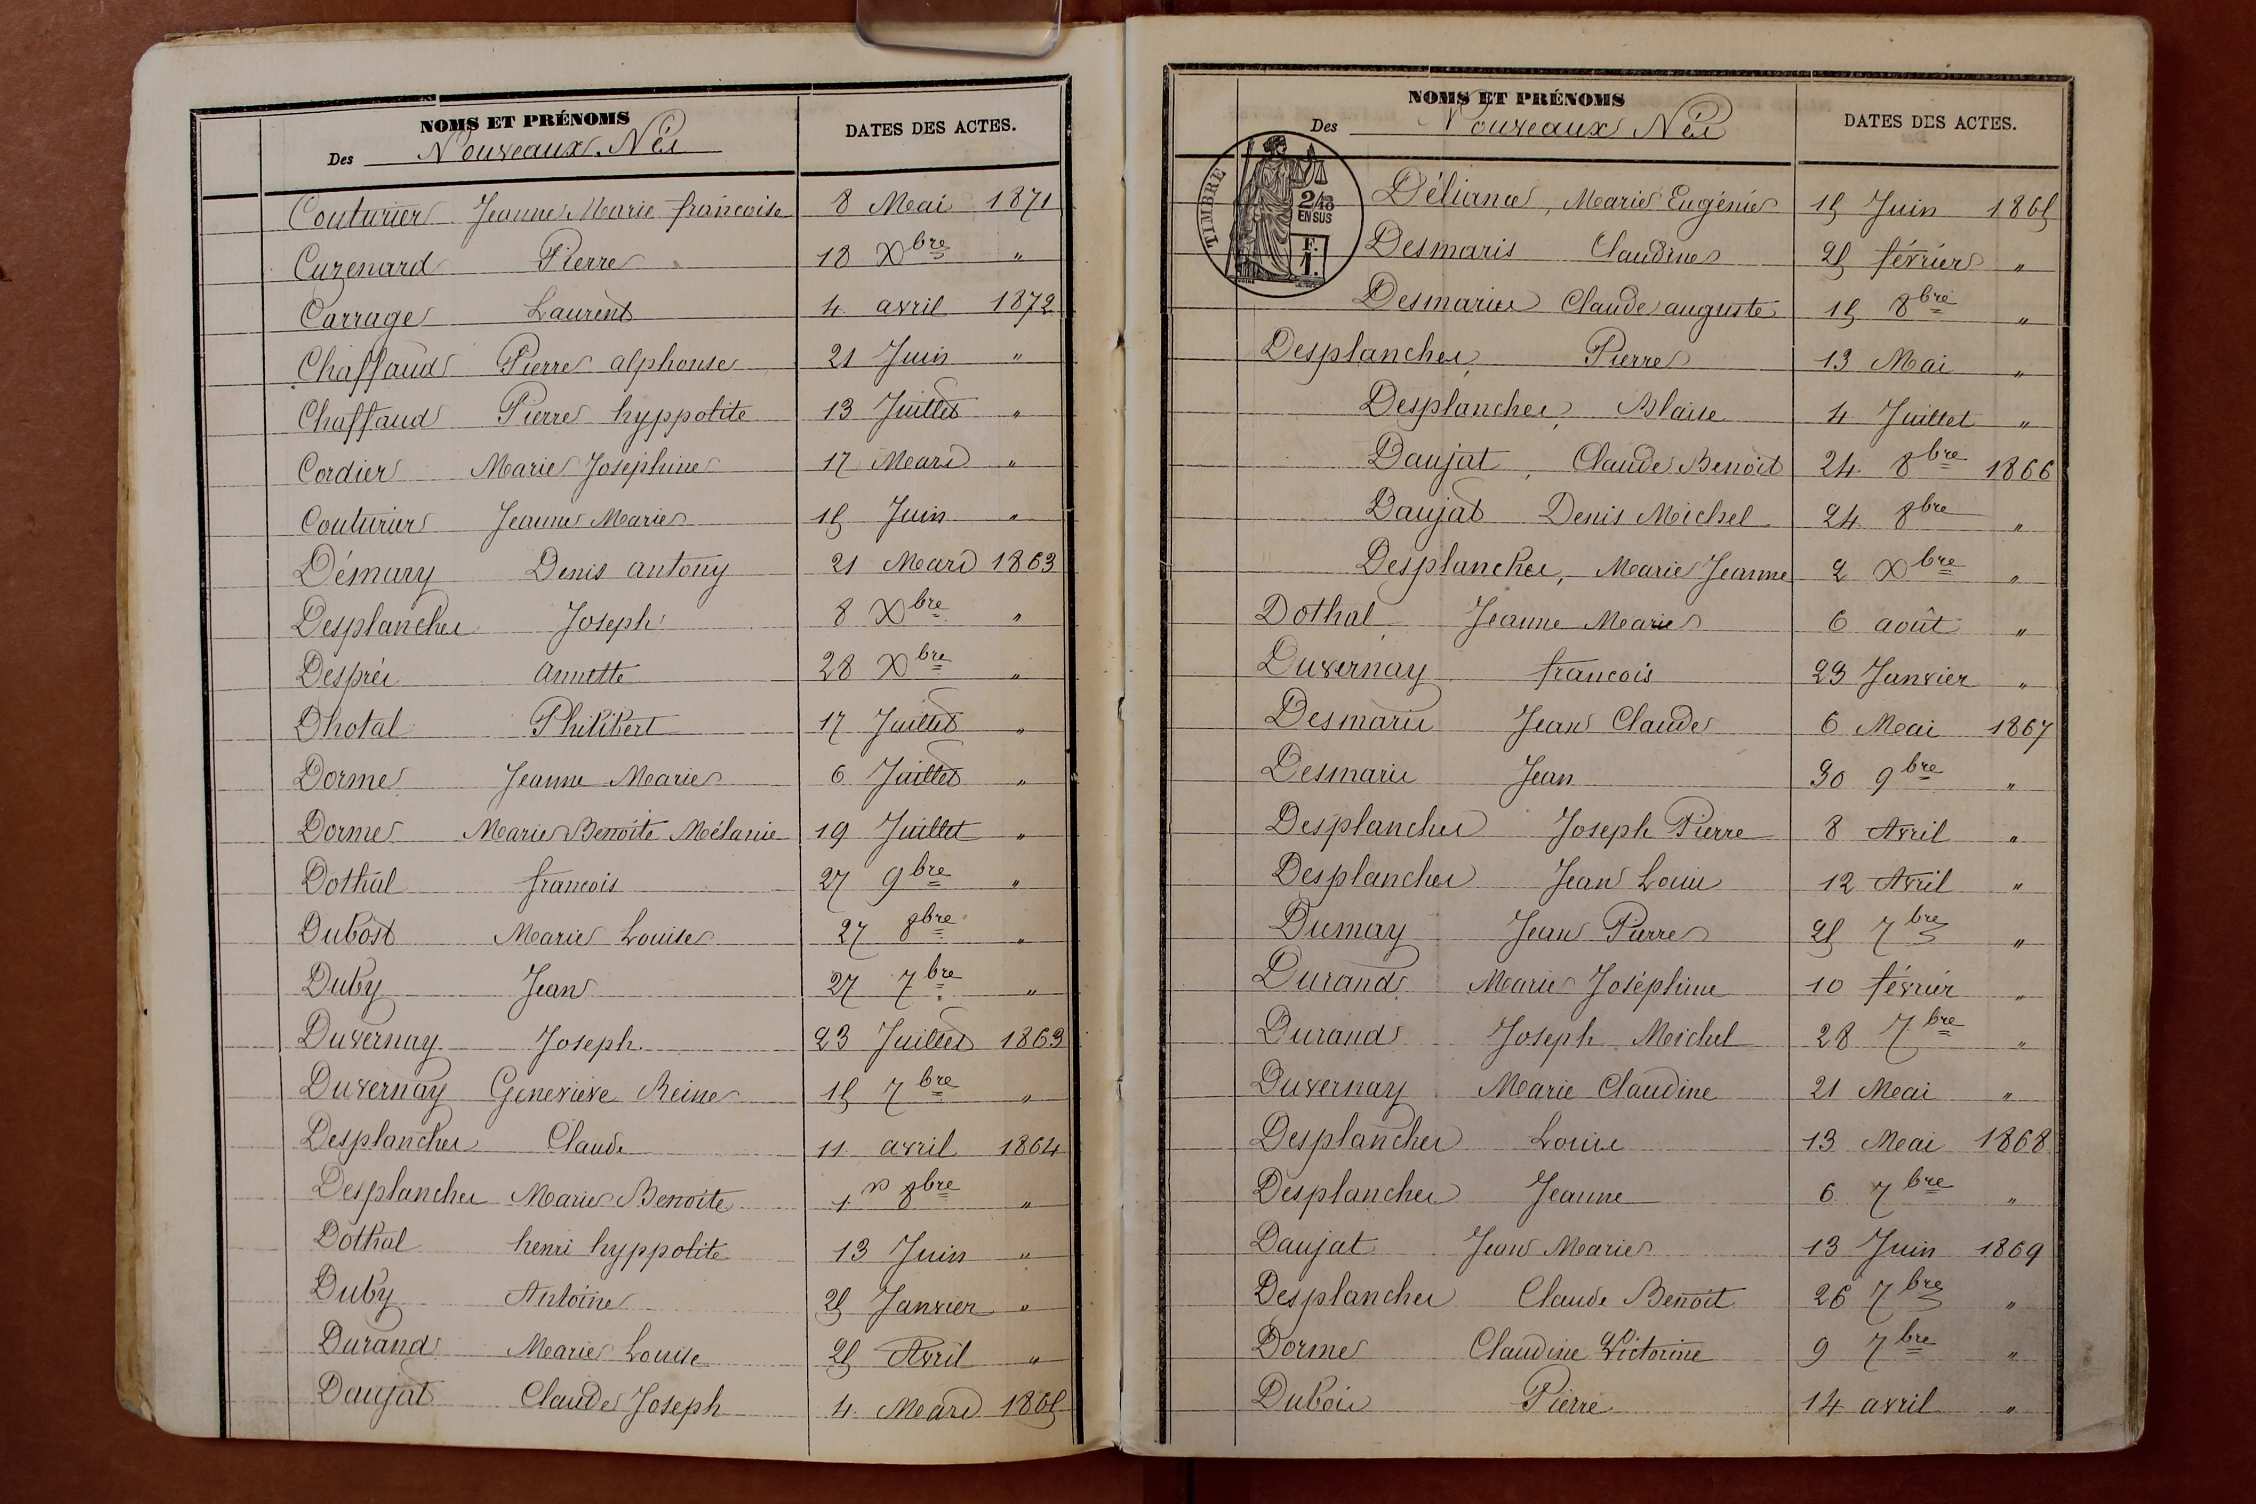 NOMS ET PRÉNOMS
Des Nouveaux Nés
DATES DES ACTES.
Couturier Jeanne Marie françoise 8 Mai 1871
Cuzenard Pierre 18 Xbre "
Carrage Laurent 4 avril 1872
Chaffaud Pierre alphonse 21 Juin "
Chaffaud Pierre hyppolite 13 Juillet "
Cordier Marie Joséphine 17 Mars "
Couturier Jeanne Marie 15 Juin "
Démary Denis antony 21 Mars 1863
Desplanches Joseph 8 Xbre "
Desprès annette 28 Xbre "
Dhotal Philibert 17 Juillet "
Dorme Jeanne Marie 6 Juillet "
Dorme Marie Benoite Mélanie 19 Juillet "
Dothal francois 27 9bre "
Dubost Marie Louise 27 8bre "
Duby Jean 27 7bre "
Duvernay Joseph 23 Juillet 1863
Duvernay Geneviève Reine 15 7bre "
Desplanches Claude 11 avril 1864
Desplanches Marie Benoite 1er 8bre "
Dothal henri hyppolite 13 Juin "
Duby Antoine 25 Janvier "
Durand Marie Louise 25 Avril "
Daujat Claude Joseph 4 Mars 1865
NOMS ET PRÉNOMS
Des Nouveaux Nés
DATES DES ACTES.
TIMBRE
2/10
EN SUS
F.
1.
Déliance, Marie Eugénie 15 Juin 1865
Desmaris Claudine 25 février "
Desmaries Claude auguste 15 8bre "
Desplanches, Pierre 13 Mai "
Desplanches, Blaise 4 Juillet "
Daujat, Claude Benoit 24 8bre 1866
Daujat Denis Michel 24 8bre "
Desplanches, Marie Jeanne 2 Xbre "
Dothal Jeanne Marie 6 août "
Duvernay francois 23 Janvier "
Desmaris Jean Claude 6 Mai 1867
Desmaris Jean 30 9bre "
Desplanches Joseph Pierre 8 Avril "
Desplanches Jean Louis 12 Avril "
Dumay Jean Pierre 25 7bre "
Durand Marie Joséphine 10 février "
Durand Joseph Michel 28 7bre "
Duvernay Marie Claudine 21 Mai "
Desplanches Louise 13 Mai 1868
Desplanches Jeanne 6 7bre "
Daujat Jean Marie 13 Juin 1869
Desplanches Claude Benoit 26 7bre "
Dorme Claudine Victorine 9 7bre "
Dubois Pierre 14 avril "